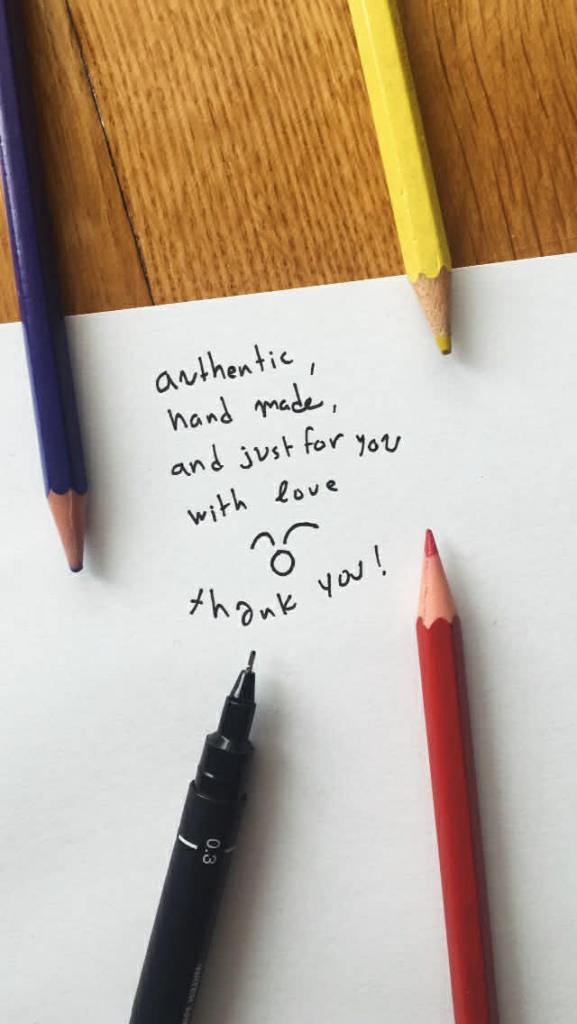 authentic,
hand made,
and just for you
with love
thank you!
0.3